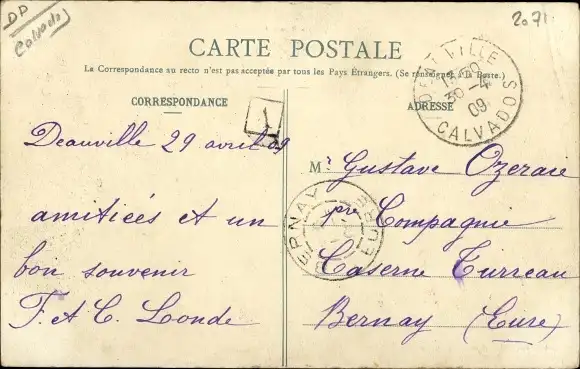 DD
Calvados
2071
CARTE POSTALE
La Correspondance au recto n'est pas acceptée par tous les Pays Étrangers. (Se renseigner à la Poste.)
CORRESPONDANCE
ADRESSE
VILLE
30-4
09
CALVADOS
Deauville 29 avril 09
amitiées et un
bon souvenir
F. et C. Londe
Mr Gustave Ozeraie
1re Compagnie
Caserne Turreau
Bernay (Eure)
BERNAY
EURE